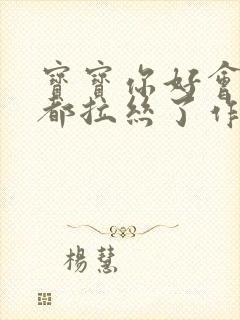 寶寶你好會
都拉絲了作
楊慧